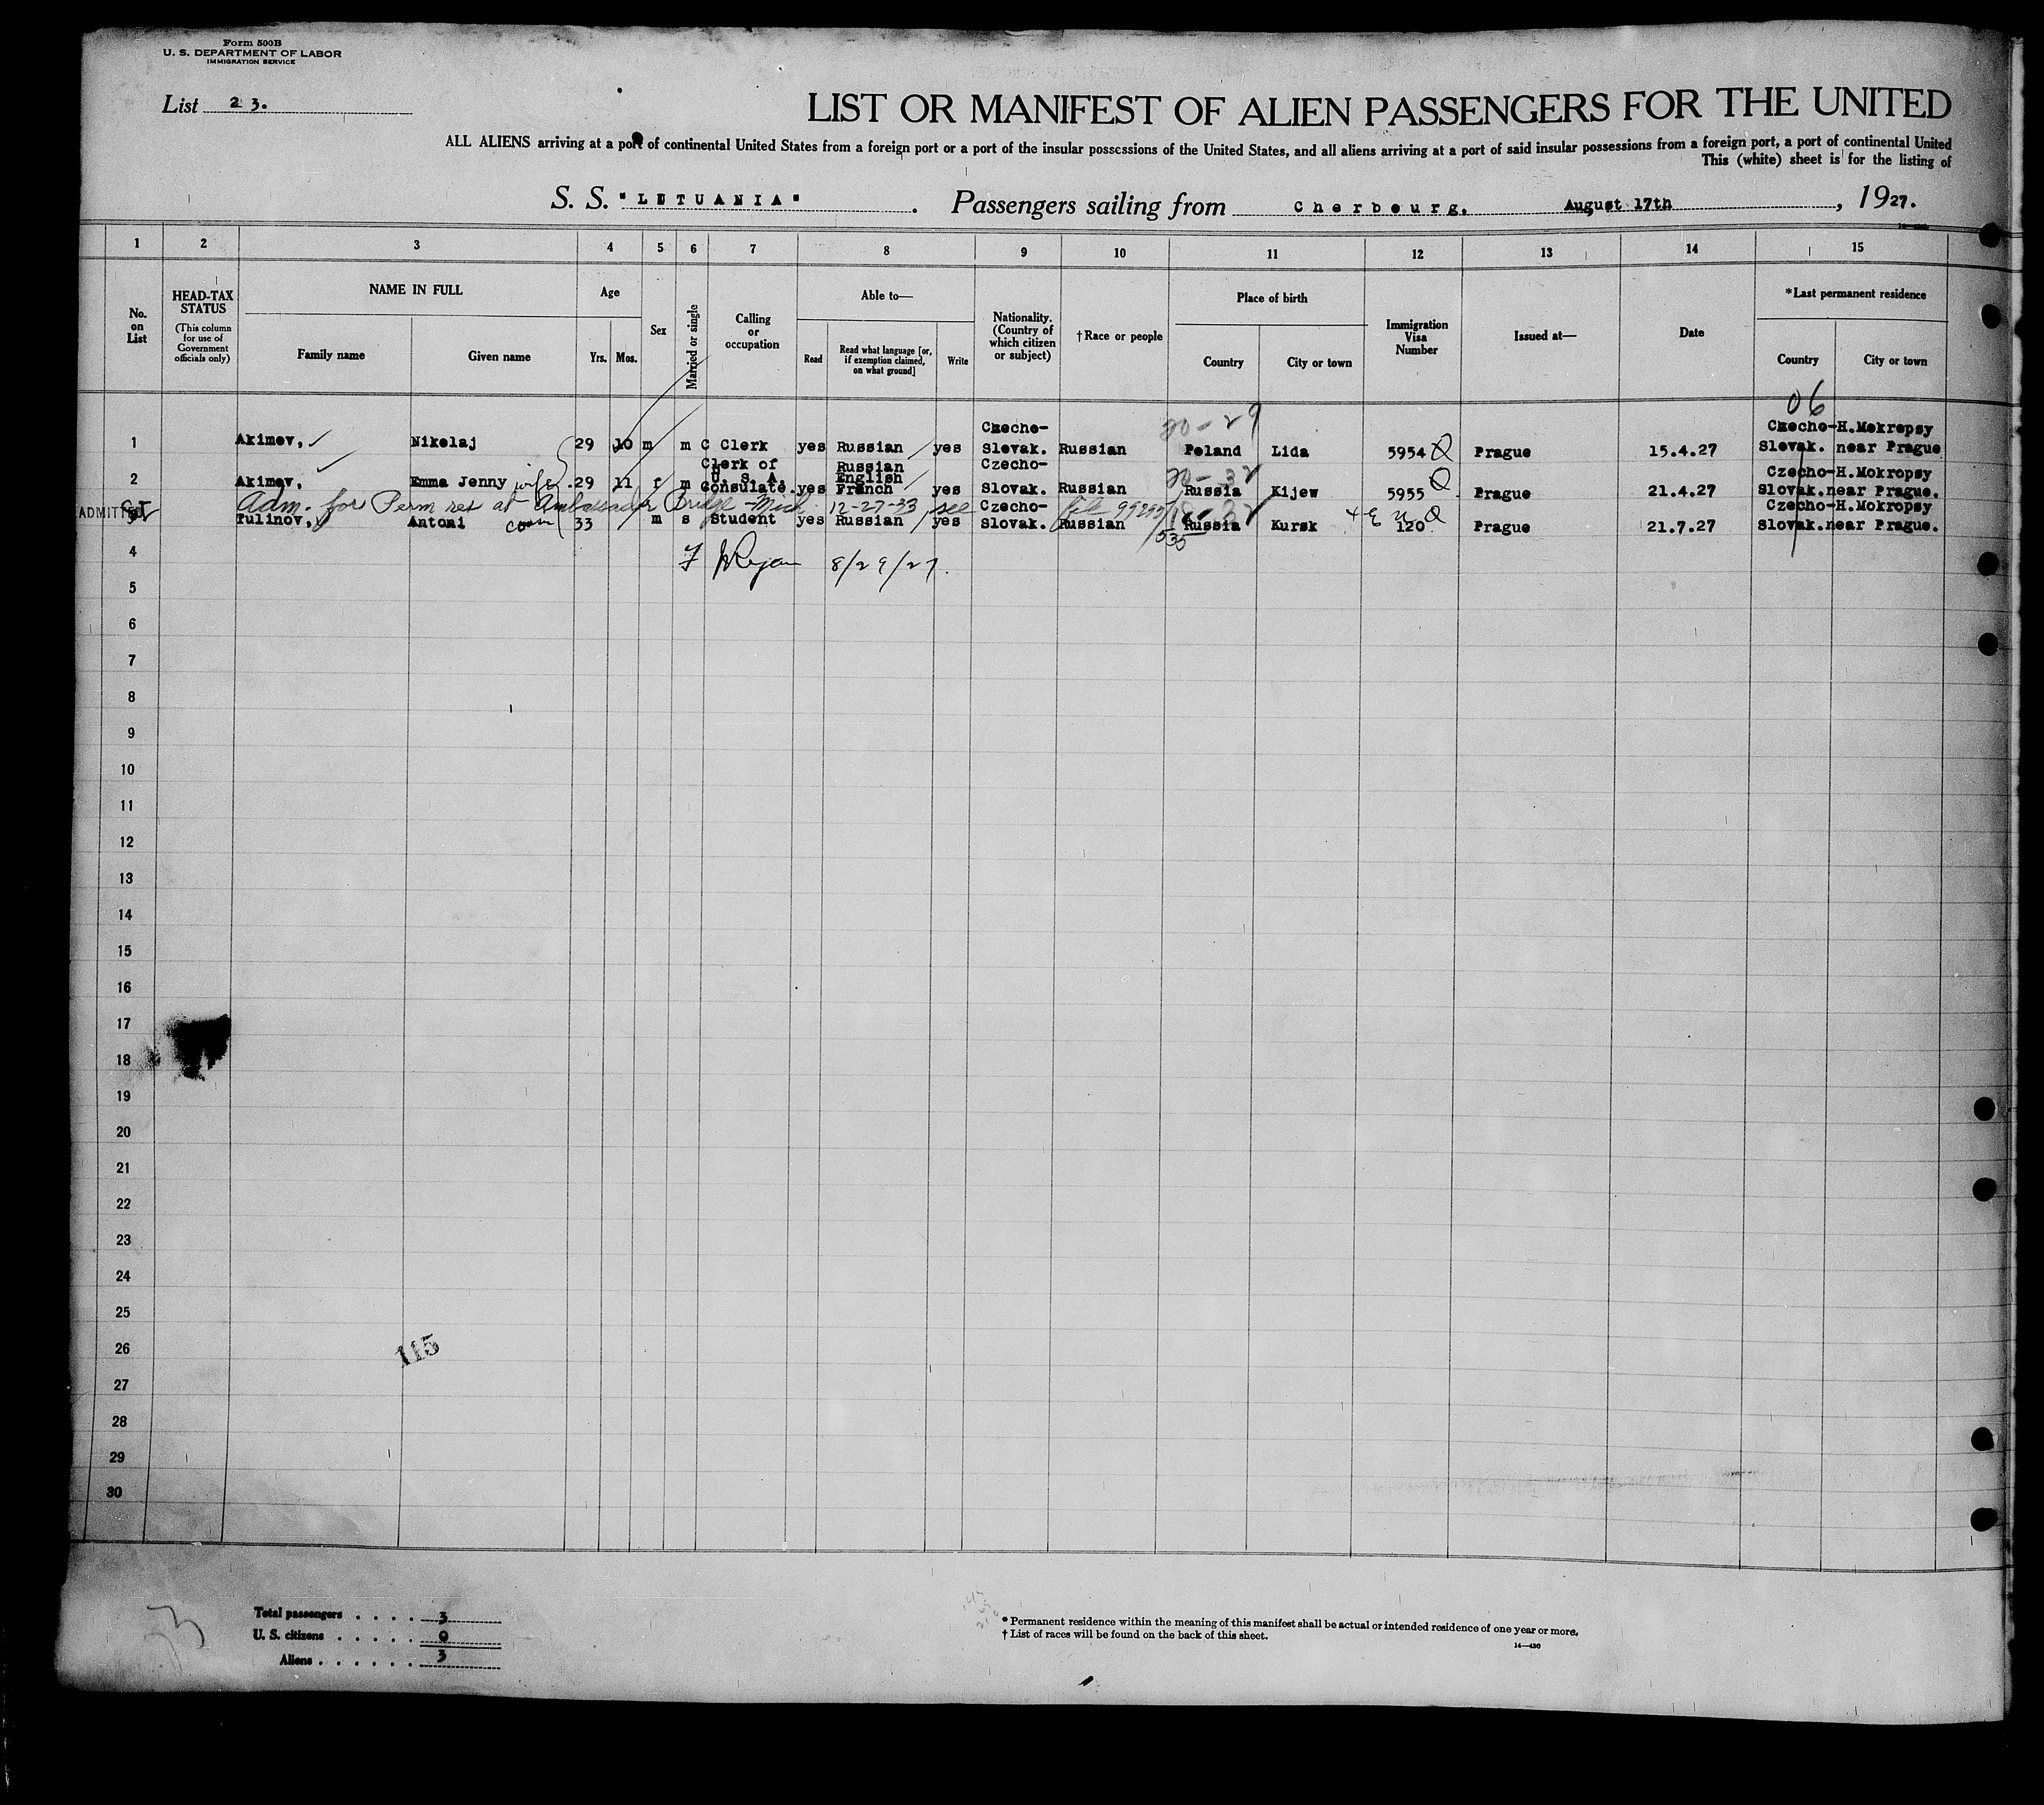 Form 500B
U. S. DEPARTMENT OF LABOR
IMMIGRATION SERVICE
List 23.
LIST OR MANIFEST OF ALIEN PASSENGERS FOR THE UNITED
ALL ALIENS arriving at a port of continental United States from a foreign port or a port of the insular possessions of the United States, and all aliens arriving at a port of said insular possessions from a foreign port, a port of continental United
This (white) sheet is for the listing of
S. S. "LETUANIA". Passengers sailing from Cherbourg, August 17th, 1927.
1 2 3 4 5 6 7 8 9 10 11 12 13 14 15
No. on List
HEAD-TAX STATUS (This column for use of Government officials only)
NAME IN FULL
Family name Given name
Age
Yrs. Mos.
Sex
Married or single
Calling or occupation
Able to—
Read Read what language [or, if exemption claimed, on what ground] Write
Nationality. (Country of which citizen or subject)
†Race or people
Place of birth
Country City or town
Immigration Visa Number
Issued at—
Date
*Last permanent residence
Country City or town
06
20-29
1 Akimov, Nikolaj 29 10 m m C Clerk yes Russian yes Czecho-Slovak. Russian Poland Lida 5954 Q Prague 15.4.27 Czecho-Slovak. H.Mokropsy near Prague
20-32
2 Akimov, Emma Jenny wife 29 11 f m Clerk of U. S. A. Consulate. yes Russian English French yes Czecho-Slovak. Russian Russia Kijew 5955 Q Prague 21.4.27 Czecho-Slovak. H.Mokropsy near Prague.
Adm. for Perm res at Ambassador Bridge-Mich 12-27-33 see file 99299/535
ADMITTED Tulinov, Antoni 33 m s Student yes Russian yes Czecho-Slovak. Russian Russia Kursk 120 Q Prague 21.7.27 Czecho-Slovak. H.Mokropsy near Prague.
4
Ryan 8/29/27.
5
6
7
8
9
10
11
12
13
14
15
16
17
18
19
20
21
22
23
24
25
26
115
27
28
29
30
Total passengers . . . . 3
U. S. citizens . . . . . 0
Aliens . . . . . . 3
* Permanent residence within the meaning of this manifest shall be actual or intended residence of one year or more.
† List of races will be found on the back of this sheet.
14—430